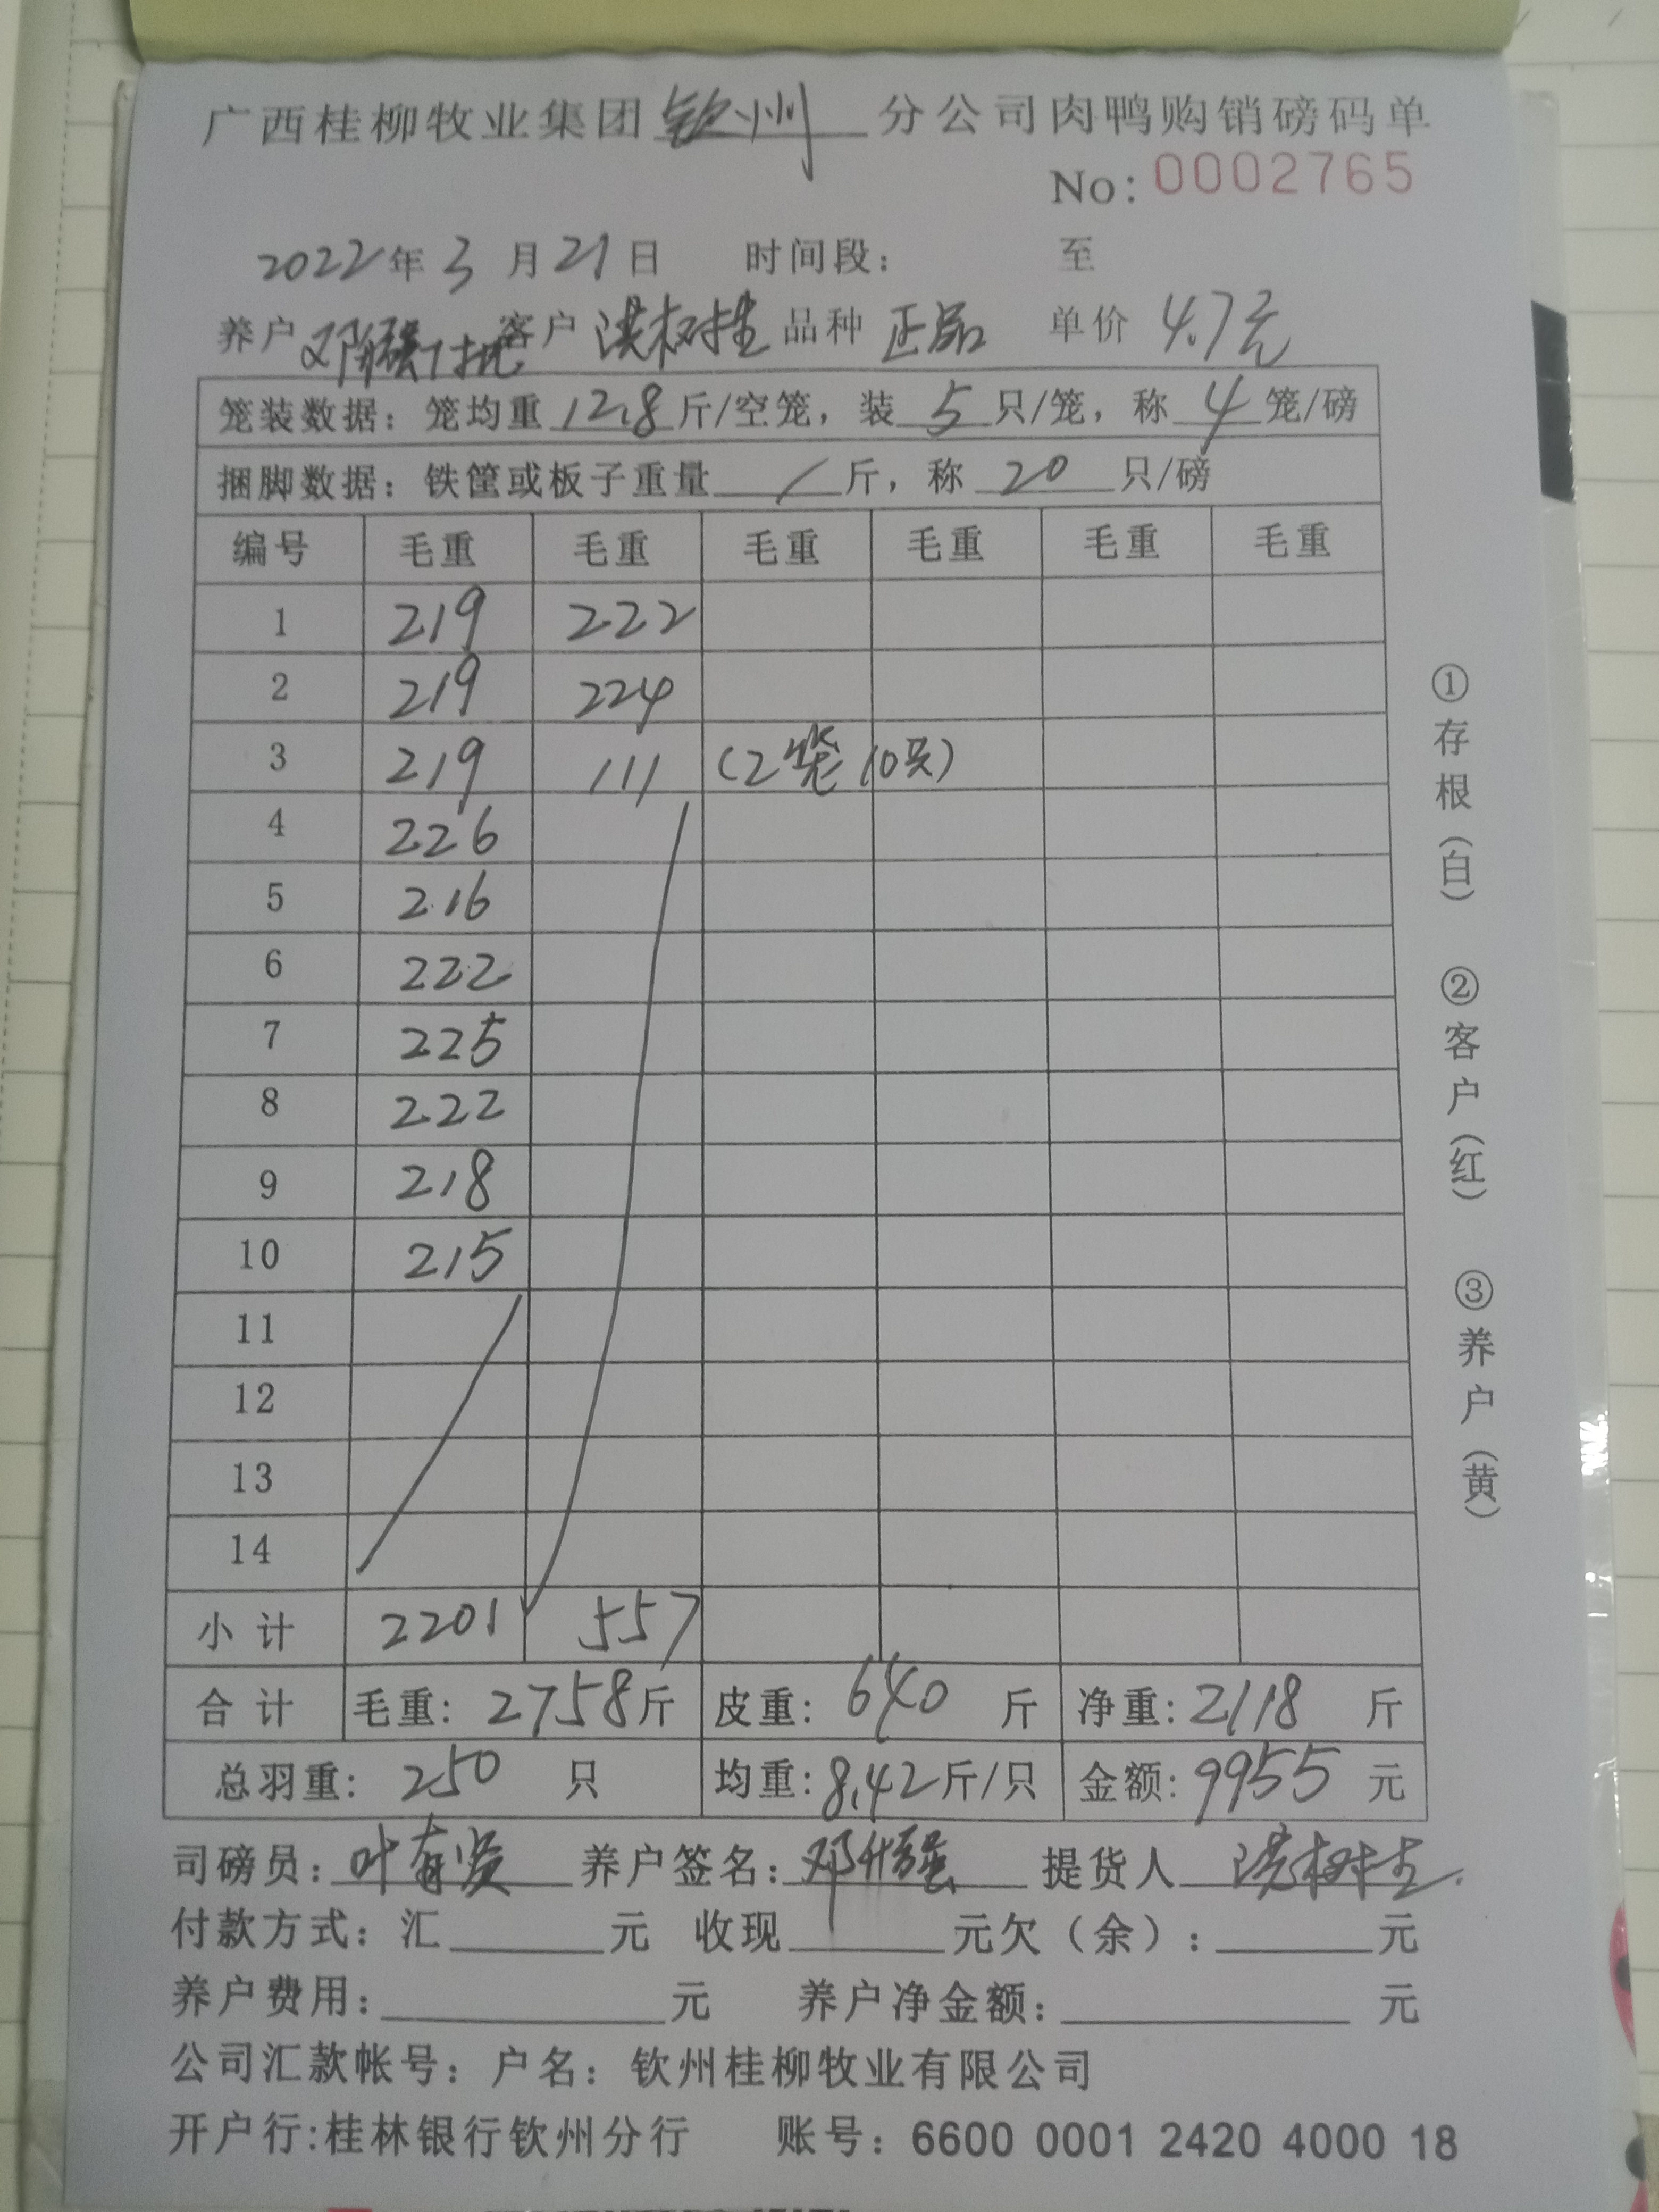 广西桂柳牧业集团钦州分公司肉鸭购销磅码单
No:0002765
2022年3月21日 时间段: 至
养户 客户 洪树生 品种 正品 单价 4.7元
笼装数据:笼均重12.8斤/空笼,装5只/笼,称4笼/磅
捆脚数据:铁筐或板子重量/斤,称20只/磅
编号 毛重 毛重 毛重 毛重 毛重 毛重
1 219 222
2 219 224
3 219 111 (2笼10只)
4 226
5 216
6 222
7 225
8 222
9 218
10 215
11
12
13
14
小计 2201 557
合计 毛重:2758斤 皮重:640斤 净重:2118斤
总羽重:250只 均重:8.42斤/只 金额:9955元
司磅员:叶有贤 养户签名: 提货人 洪树生
付款方式:汇 元 收现 元欠(余): 元
养户费用: 元 养户净金额: 元
公司汇款帐号:户名:钦州桂柳牧业有限公司
开户行:桂林银行钦州分行 账号:6600 0001 2420 4000 18
①存根(白) ②客户(红) ③养户(黄)